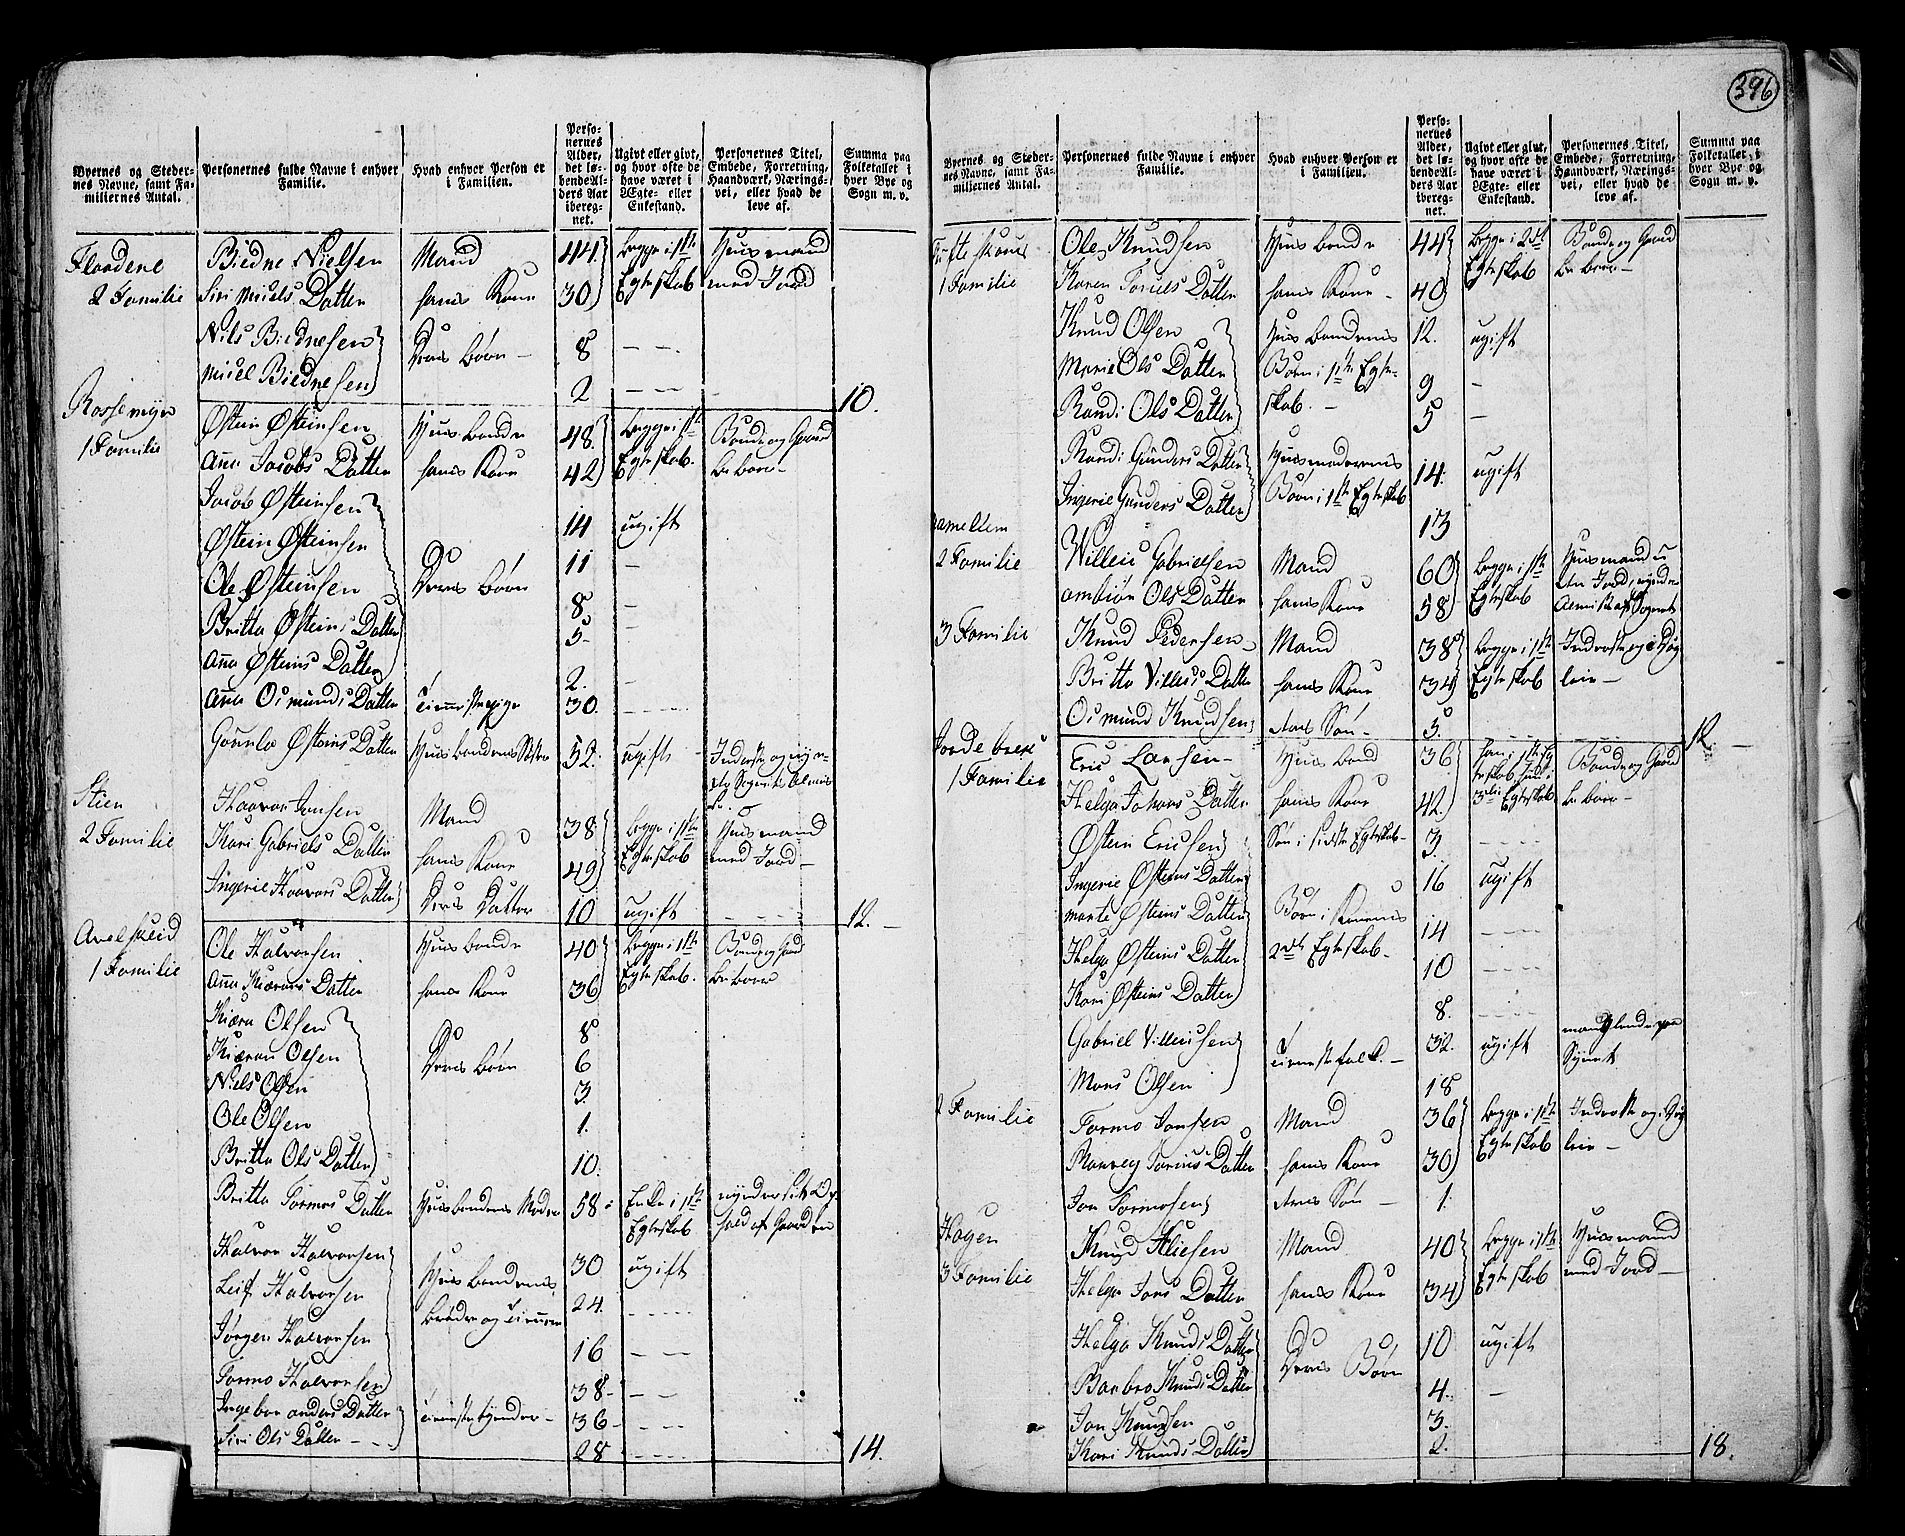 396
Byernes og Steder-
nes Navne, samt Fa-
miliernes Antal.
Personernes fulde Navne i enhver
Familie.
Hvad enhver Person er
i Familien.
Perso-
nernes
Alder,
det lø-
bende Al-
ders Aar
ibereg-
net.
Ugivt eller givt,
og hvor ofte de
have været i
Ægte- eller
Enkestand.
Personernes Titel,
Embede, Forretning,
Haandværk, Nærings-
vei, eller hvad de
leve af.
Summa paa
Folketallet i
hver Bye og
Sogn m. v.
Floodene Biedne Nielsen Mand 44 begge i 1ste Huusmand
2 Familie Siri Michels Datter hans Kone 30 Egteskab med Jord
Nils Biednesen Deres Børn 8
Michel Biednesen 2 10.
Rossemyr Østein Østeinsen Huusbonde 48 begge i 1ste Bonde og Gaard
1 Familie Anna Jacobs Datter hans Kone 42 Egteskab beboer
Jacob Østeinsen 14 ugift
Østein Østeinsen 11
Ole Østeinsen Deres Børn 8
Britta Østeins Datter 5
Anna Østeins Datter 2.
Anna Osmunds Datter tienestepige 30.
Gunnild Østeins Datter Huusbondens Søster 52. ugift
Stien Haavor Jonsen Mand 38 begge i 1ste Huusmand
2 Familie Kari Gabriels Datter hans Kone 49 Egteskab med Jord
Ingerie Haavors Datter Deres Datter 10 ugift 12.
Avelskeid Ole Halvorsen Huusbonde 40 begge i 1ste Bonde og Gaard
1 Familie Anna Kiærans Datter hans Kone 36 Egteskab beboer
Olsen 8
Kiæran Olsen Deres Børn 6
Niels Olsen 3.
Ole Olsen 1.
Britta Ols Datter 10.
Britta Tormos Datter Huusbondens Moder 58 Enke i 1ste
Egteskab
Halvor Halvorsen 30 ugift
Leif Halvorsen Huusbondens 24.
Jørgen Halvorsen 16
Tormo Halvorsen 38
Ingebor Anders Datter tienestetyender 36
Siri Ols Datter 28 14.
Byernes og Steder-
nes Navne, samt Fa-
miliernes Antal.
Personernes fulde Navne i enhver
Familie.
Hvad enhver Person er
i Familien.
Perso-
nernes
Alder,
det lø-
bende Al-
ders Aar
ibereg-
net.
Ugivt eller givt,
og hvor ofte de
have været i
Ægte- eller
Enkestand.
Personernes Titel,
Embede, Forretning,
Haandværk, Nærings-
vei, eller hvad de
leve af.
Summa paa
Folketallet i
hver Bye og
Sogn m. v.
Ole Knudsen Huusbonde 44 begge i 2det Bonde og Gaard
1 Familie Karen Datter hans Kone 40 Egteskab beboer
Knud Olsen Huusbondens 12. ugift
Marie Ols Datter Børn i 1ste Egte- 9
Randi Ols Datter skab. 5
Randi Gunders Datter Huusmoderens 14. ugift
Ingerie Gunders Datter Børn i 1ste Egteskab 13
2 Familie Gabrielsen Mand 60 begge i 1ste Huusmand
Ols Datter hans Kone 58 Egteskab
3 Familie Knud Pedersen Mand 38 begge i 1ste
Britta Datter hans Kone 34 Egteskab
Osmund Knudsen deres Søn 5 12
Eric Larsen Huusbond 36 Bonde og Gaard
1 Familie Helga Johans Datter hans Kone 42. 3die Egteskab beboer
Østein Ericsen Søn i sidste Egteskab 3.
Ingerie Østeins Datter 16 ugift
Marite Østeins Datter Børn i Konens 14
Helga Østeins Datter 2det Egteskab 10
Kari Østeins Datter 8.
Gabriel Villeiusen tienestefolk 32. ugift
Mons Olsen 18
2 Familie Tormo Jonsen Mand 36 begge i 1ste
Datter hans Kone 30 Egteskab
Jon Tormosen deres Søn 1.
Hagen Knud Mand 40 begge i 1ste Huusmand
3 Familie Helga Jons Datter hans Kone 34 Egteskab med Jord
Helga Knuds Datter Deres Børn 10 ugift
Barbro Knuds Datter 4.
Jon Knudsen 3.
Kari Knuds Datter 2. 18.